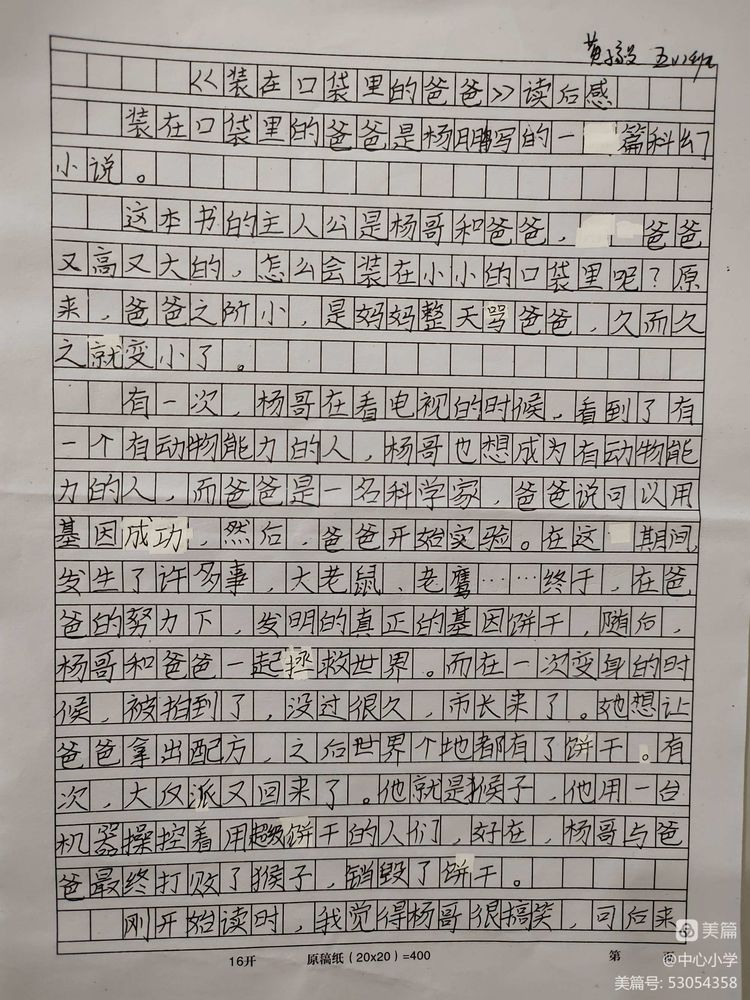 黄毅 五(1)班
<<装在口袋里的爸爸>>读后感
装在口袋里的爸爸是杨鹏写的一篇科幻
小说。
这本书的主人公是杨哥和爸爸，爸爸
又高又大的，怎么会装在小小的口袋里呢？原
来，爸爸之阶小，是妈妈整天骂爸爸，久而久
之就变小了。
有一次，杨哥在看电视的时候，看到了有
一个有动物能力的人，杨哥也想成为有动物能
力的人，而爸爸是一名科学家，爸爸说可以用
基因成功，然后，爸爸开始实验。在这期间，
发生了许多事，大老鼠、老鹰……终于，在爸
爸的努力下，发明的真正的基因饼干，随后，
杨哥和爸爸一起拯救世界。而在一次变身的时
候，被拍到了，没过很久，市长来了。她想让
爸爸拿出配方，之后世界个地都有了饼干。有
次，大反派又回来了。他就是猴子，他用一台
机器操控着用超级饼干的人们，好在，杨哥与爸
爸最终打败了猴子，销毁了饼干。
刚开始读时，我觉得杨哥很搞笑，可后来
16开 原稿纸(20x20)=400 第 页
美篇
@中心小学
美篇号: 53054358